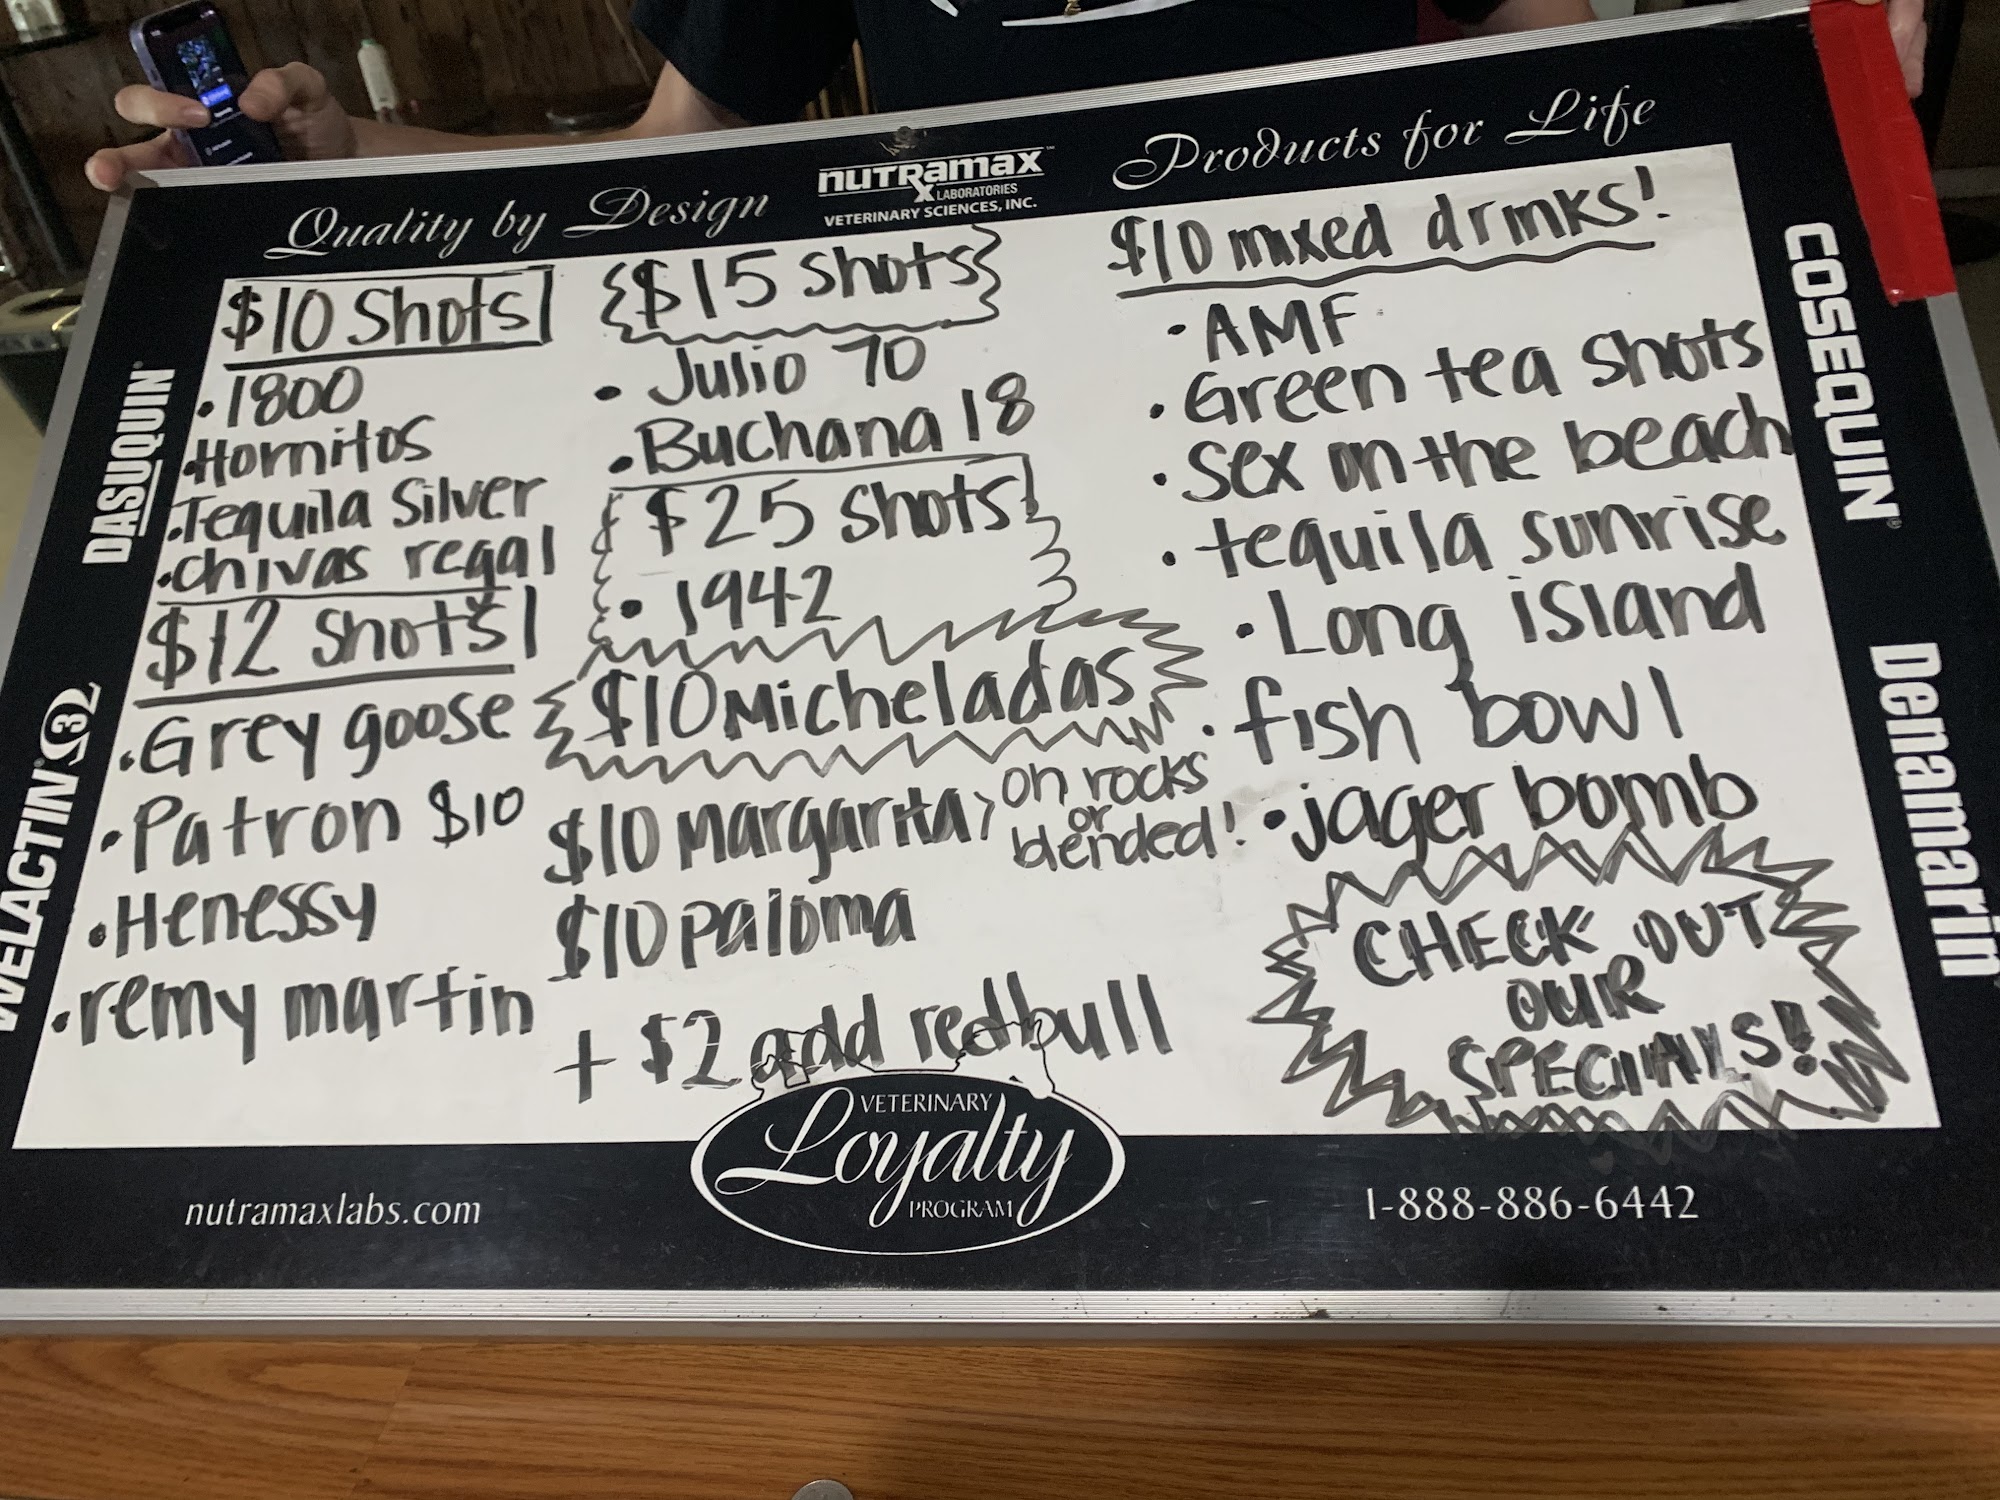 Quality by Design
nutramax
LABORATORIES
VETERINARY SCIENCES, INC.
Products for Life
DASUQUIN
WELACTIN Ω3
$10 Shots
• 1800
• Hornitos
• Tequila Silver
• chivas regal
$12 shots
• Grey goose
• Patron $10
• Henessy
• remy martin
$15 shots
• Julio 70
• Buchana 18
$25 shots
• 1942
$10 Micheladas
$10 Margarita > on rocks
or
blended!
$10 paloma
+ $2 add redbull
$10 mixed drinks!
• AMF
• Green tea shots
• Sex on the beach
• tequila sunrise
• Long island
• fish bowl
• jager bomb
CHECK OUT
OUR
SPECIALS!
COSEQUIN
Denamarin
nutramaxlabs.com
VETERINARY
Loyalty
PROGRAM
1-888-886-6442